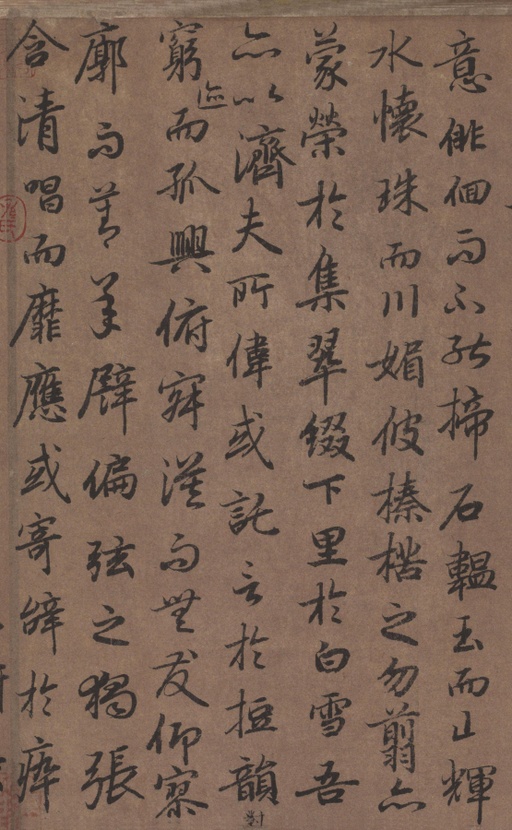 意徘徊而不能揥石韞玉而山輝
水懷珠而川媚彼榛楛之勿翦亦
蒙榮於集翠綴下里於白雪吾
亦以濟夫所偉或託言於短韻對
窮迹而孤興俯寂漠而無友仰寥
廓而莫承譬偏弦之獨張
含清唱而靡應或寄辭於瘁